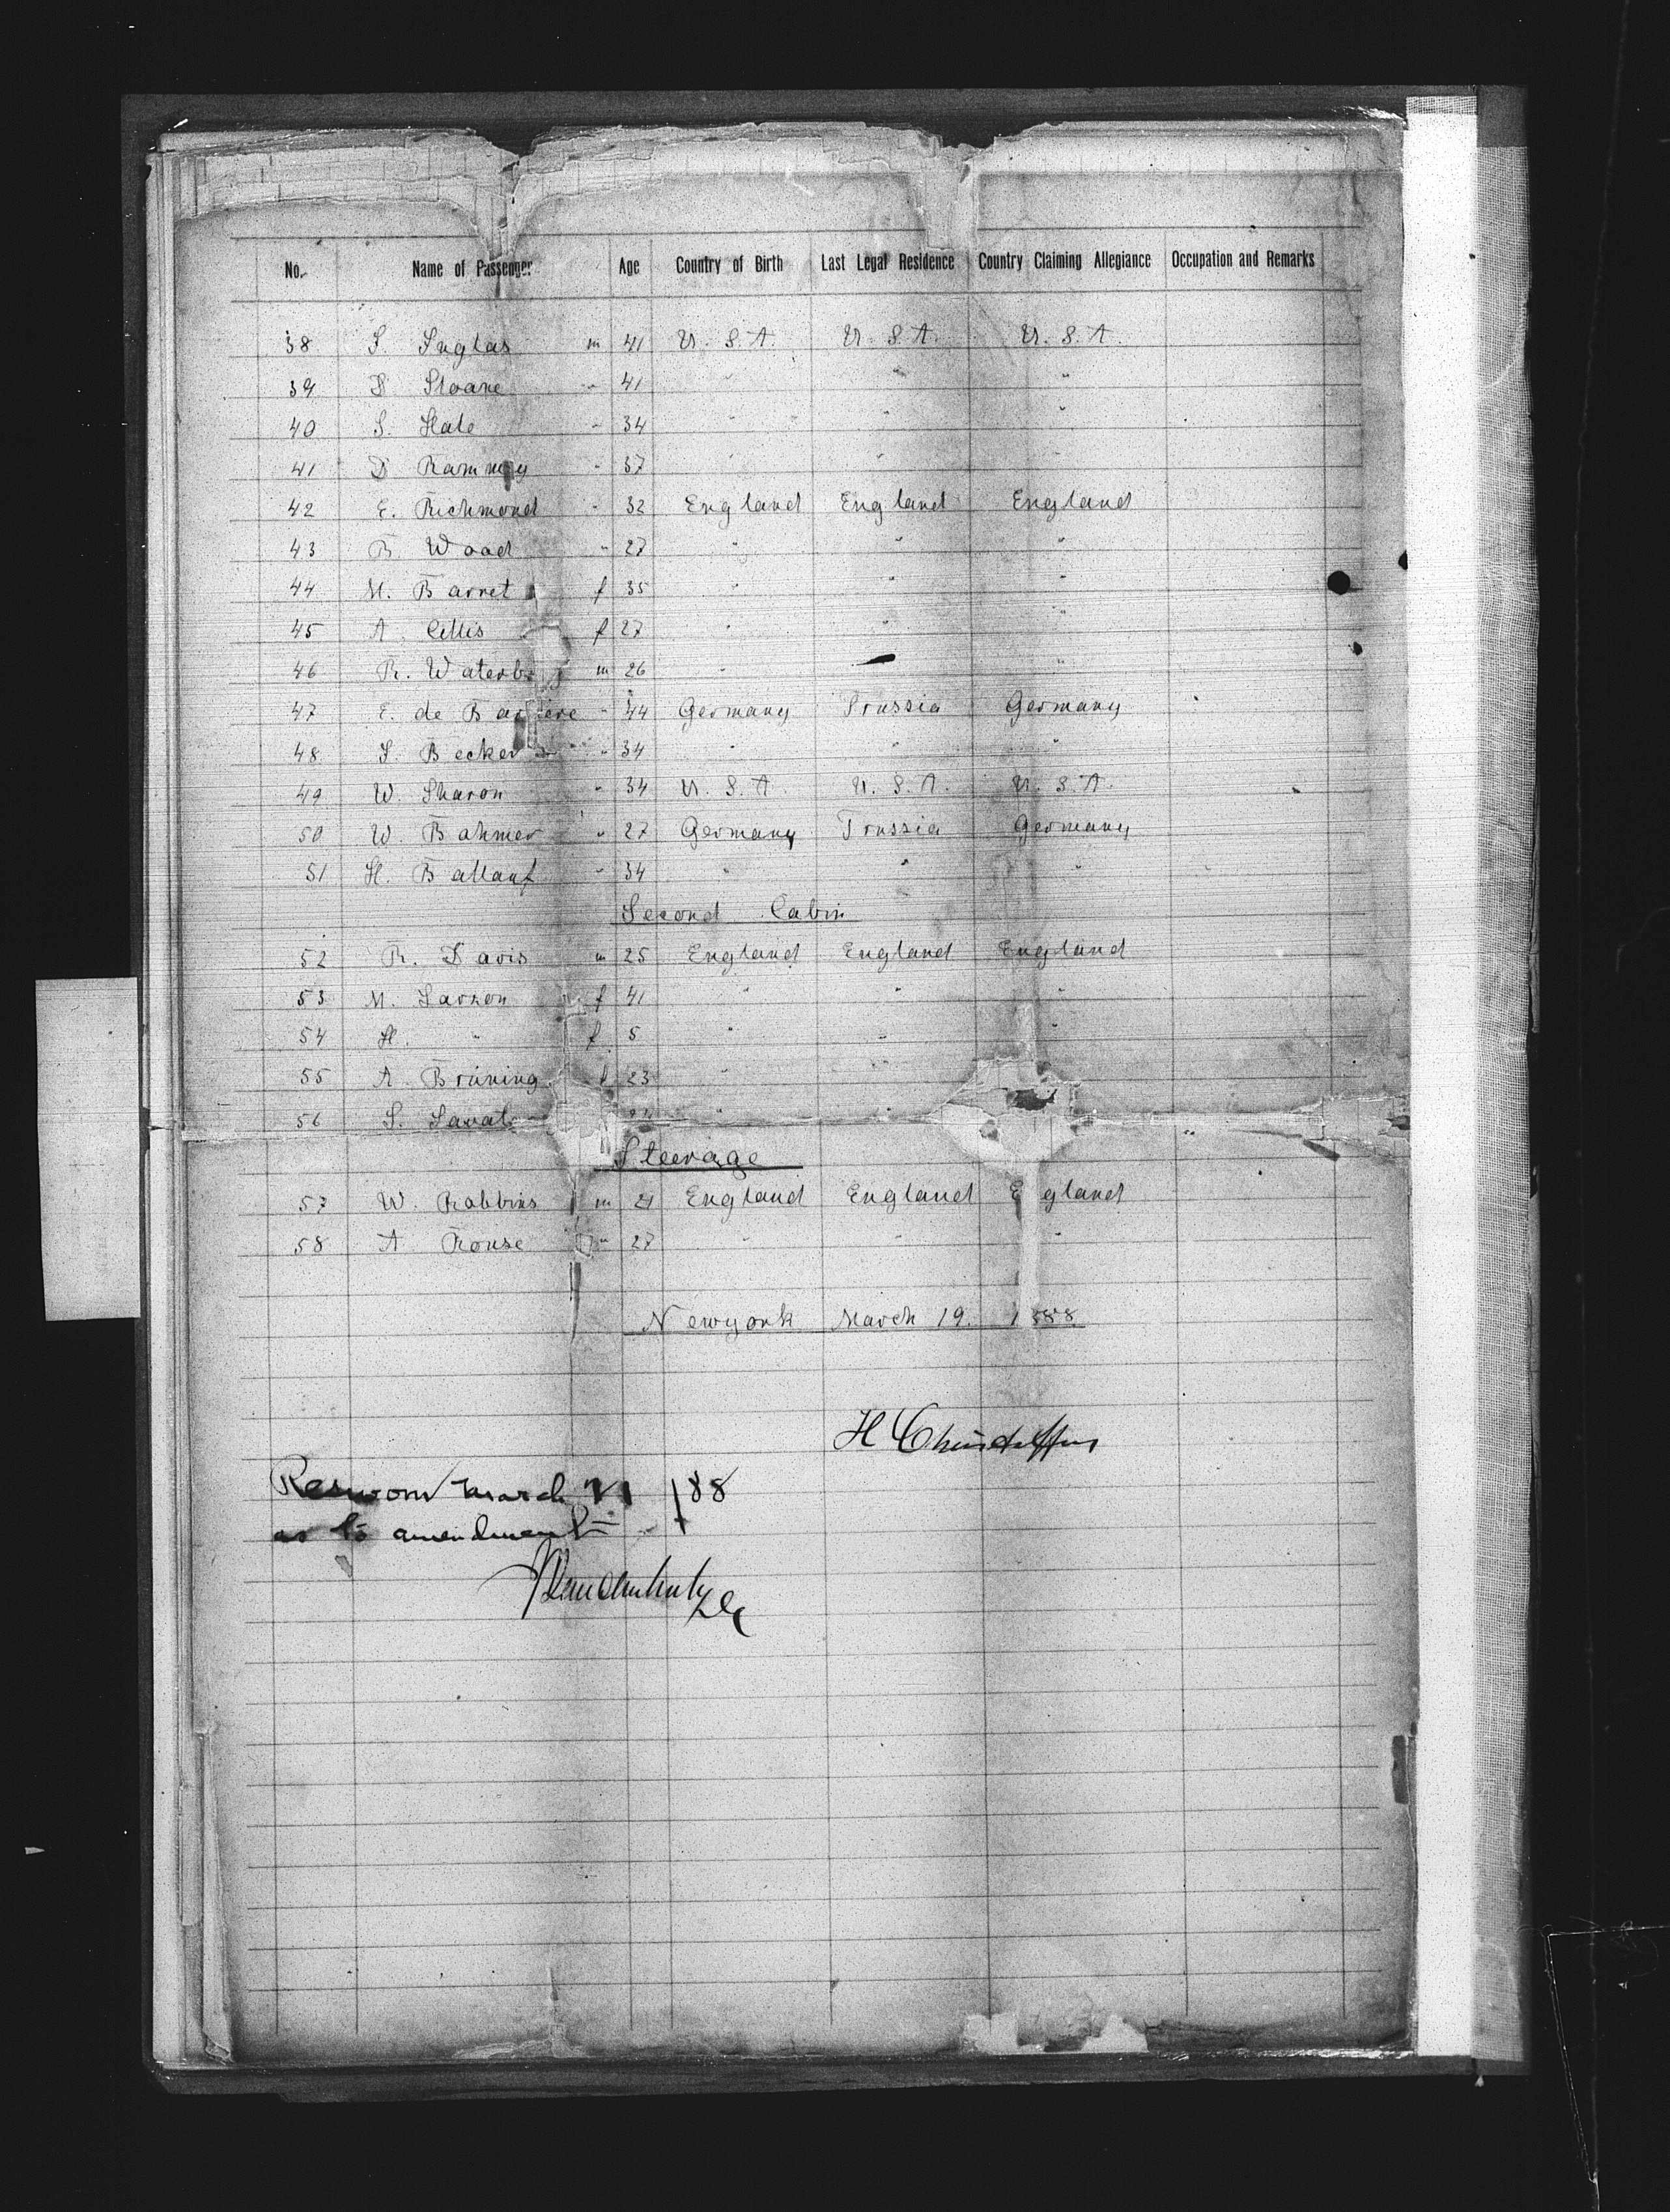 No. Name of Passenger Age Country of Birth Last Legal Residence Country Claiming Allegiance Occupation and Remarks
38 S. Inglas m 41 U.S.A. U.S.A. U.S.A.
39 D Sloane " 41 " " "
40 S. Hale " 34 " " "
41 D Rammey " 37 " " "
42 E. Richmond " 32 England England England
43 B Wood " 27 " " "
44 M. Barret f 35 " " "
45 A. Ellis f 27 " " "
46 R. m 26 " "
47 E. de " 44 Germany Prussia Germany
48 S. Becker " 34 " " "
49 W. Sharon " 34 U.S.A. U.S.A. U.S.A.
50 W. Bahmer " 27 Germany Prussia Germany
51 H. Ballauf " 34 " " "
Second Cabin
52 R. Davis m 25 England England England
53 M. Larson f 41 " " "
54 H. " f 5 " " "
55 A. Brüning f 23 " "
56 S. " "
Steerage
57 W. Robbins m 21 England England E gland
58 A Rouse " 27 " " "
Newyork March 19. 1888
H
Resworn March 21 / 88
as to amendment